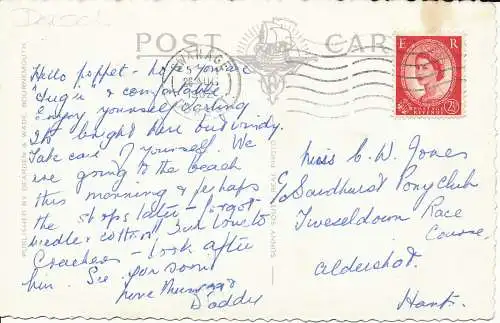 Dorset
POST CARD
SWANAGE
DORSET
E R
POSTAGE
REVENUE
2½D
Hello poppet - hope you are
"snug" & comfortable.
Enjoy yourself darling
It's bright here but windy.
Take care of yourself. We
are going to the beach
this morning & perhaps
the shops later - forgot
needle & cotton! Much love to
- look after
him. See you soon
love Mummy &
Daddy
PUBLISHED BY DEARDEN & WADE, BOURNEMOUTH
SUNNY SOUTH REAL PHOTO
Miss C. W. Jones
c/o Sandhurst Pony Club
Tweseldown Race
Course
Aldershot.
Hants.